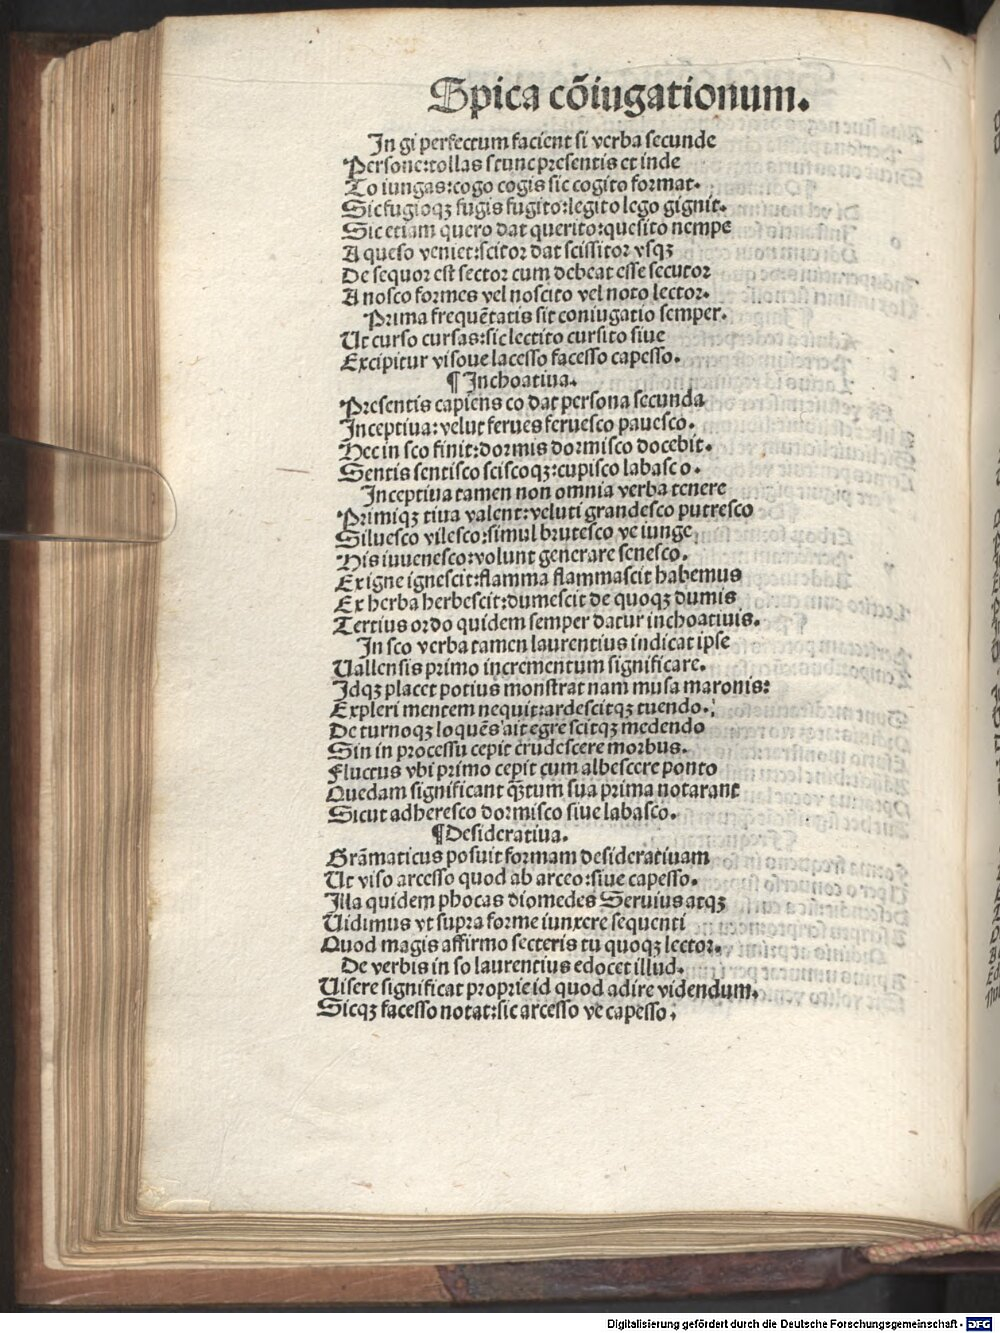 Spica cõiugationum.
In gi perfectum facient si verba secunde
Persone:tollas s tunc presentis et inde
To iungas:cogo cogis sic cogito format.
Sic fugioqꝫ fugis fugito:legito lego gignit.
Sic etiam quero dat querito:quesito nempe
A queso veniet:scitor dat scissitor vsqꝫ
De sequor est sector cum debeat esse secutor
A nosco formes vel noscito vel noto lector.
Prima frequẽtatis sit coniugatio semper.
Ut curso cursas:sic lectito cursito siue
Excipitur visoue lacesso facesso capesso.
¶ Inchoatiua.
Presentis capiens co dat persona secunda
Inceptiua:velut ferues feruesco pauesco.
Hec in sco finit:dormis dormisco docebit.
Sentis sentisco sciscoqꝫ:cupisco labasco.
Inceptiua tamen non omnia verba tenere
Primiqꝫ tiua valent:veluti grandesco putresco
Siluesco vilesco:simul brutesco ve iunge
His iuuenesco:volunt generare senesco.
Ex igne ignescit:flamma flammascit habemus
Ex herba herbescit:dumescit de quoqꝫ dumis
Tertius ordo quidem semper datur inchoatiuis.
In sco verba tamen laurentius indicat ipse
Uallensis primo incrementum significare.
Idqꝫ placet potius monstrat nam musa maronis:
Expleri mentem nequit:ardescitqꝫ tuendo.
De turnoqꝫ loquẽs ait egrescitqꝫ medendo
Sin in processu cepit crudescere morbus.
Fluctus vbi primo cepit cum albescere ponto
Quedam significant q̃tum sua prima notarant
Sicut adheresco dormisco siue labasco.
¶ Desideratiua.
Grãmaticus posuit formam desideratiuam
Ut viso arcesso quod ab arceo:siue capesso.
Illa quidem phocas diomedes Seruius atqꝫ
Uidimus vt supra forme iunxere sequenti
Quod magis affirmo secteris tu quoqꝫ lector.
De verbis in so laurentius edocet illud.
Uisere significat proprie id quod adire videndum.
Sicqꝫ facesso notat:sic arcesso ve capesso.
Digitalisierung gefördert durch die Deutsche Forschungsgemeinschaft - DFG